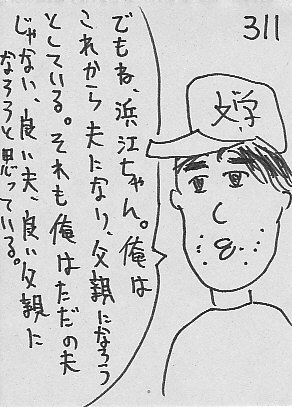 311
文学
でもね、浜江ちゃん。俺は
これから夫になり、父親になろう
としている。それも俺はただの夫
じゃない、良い夫、良い父親に
なろうと思っている。